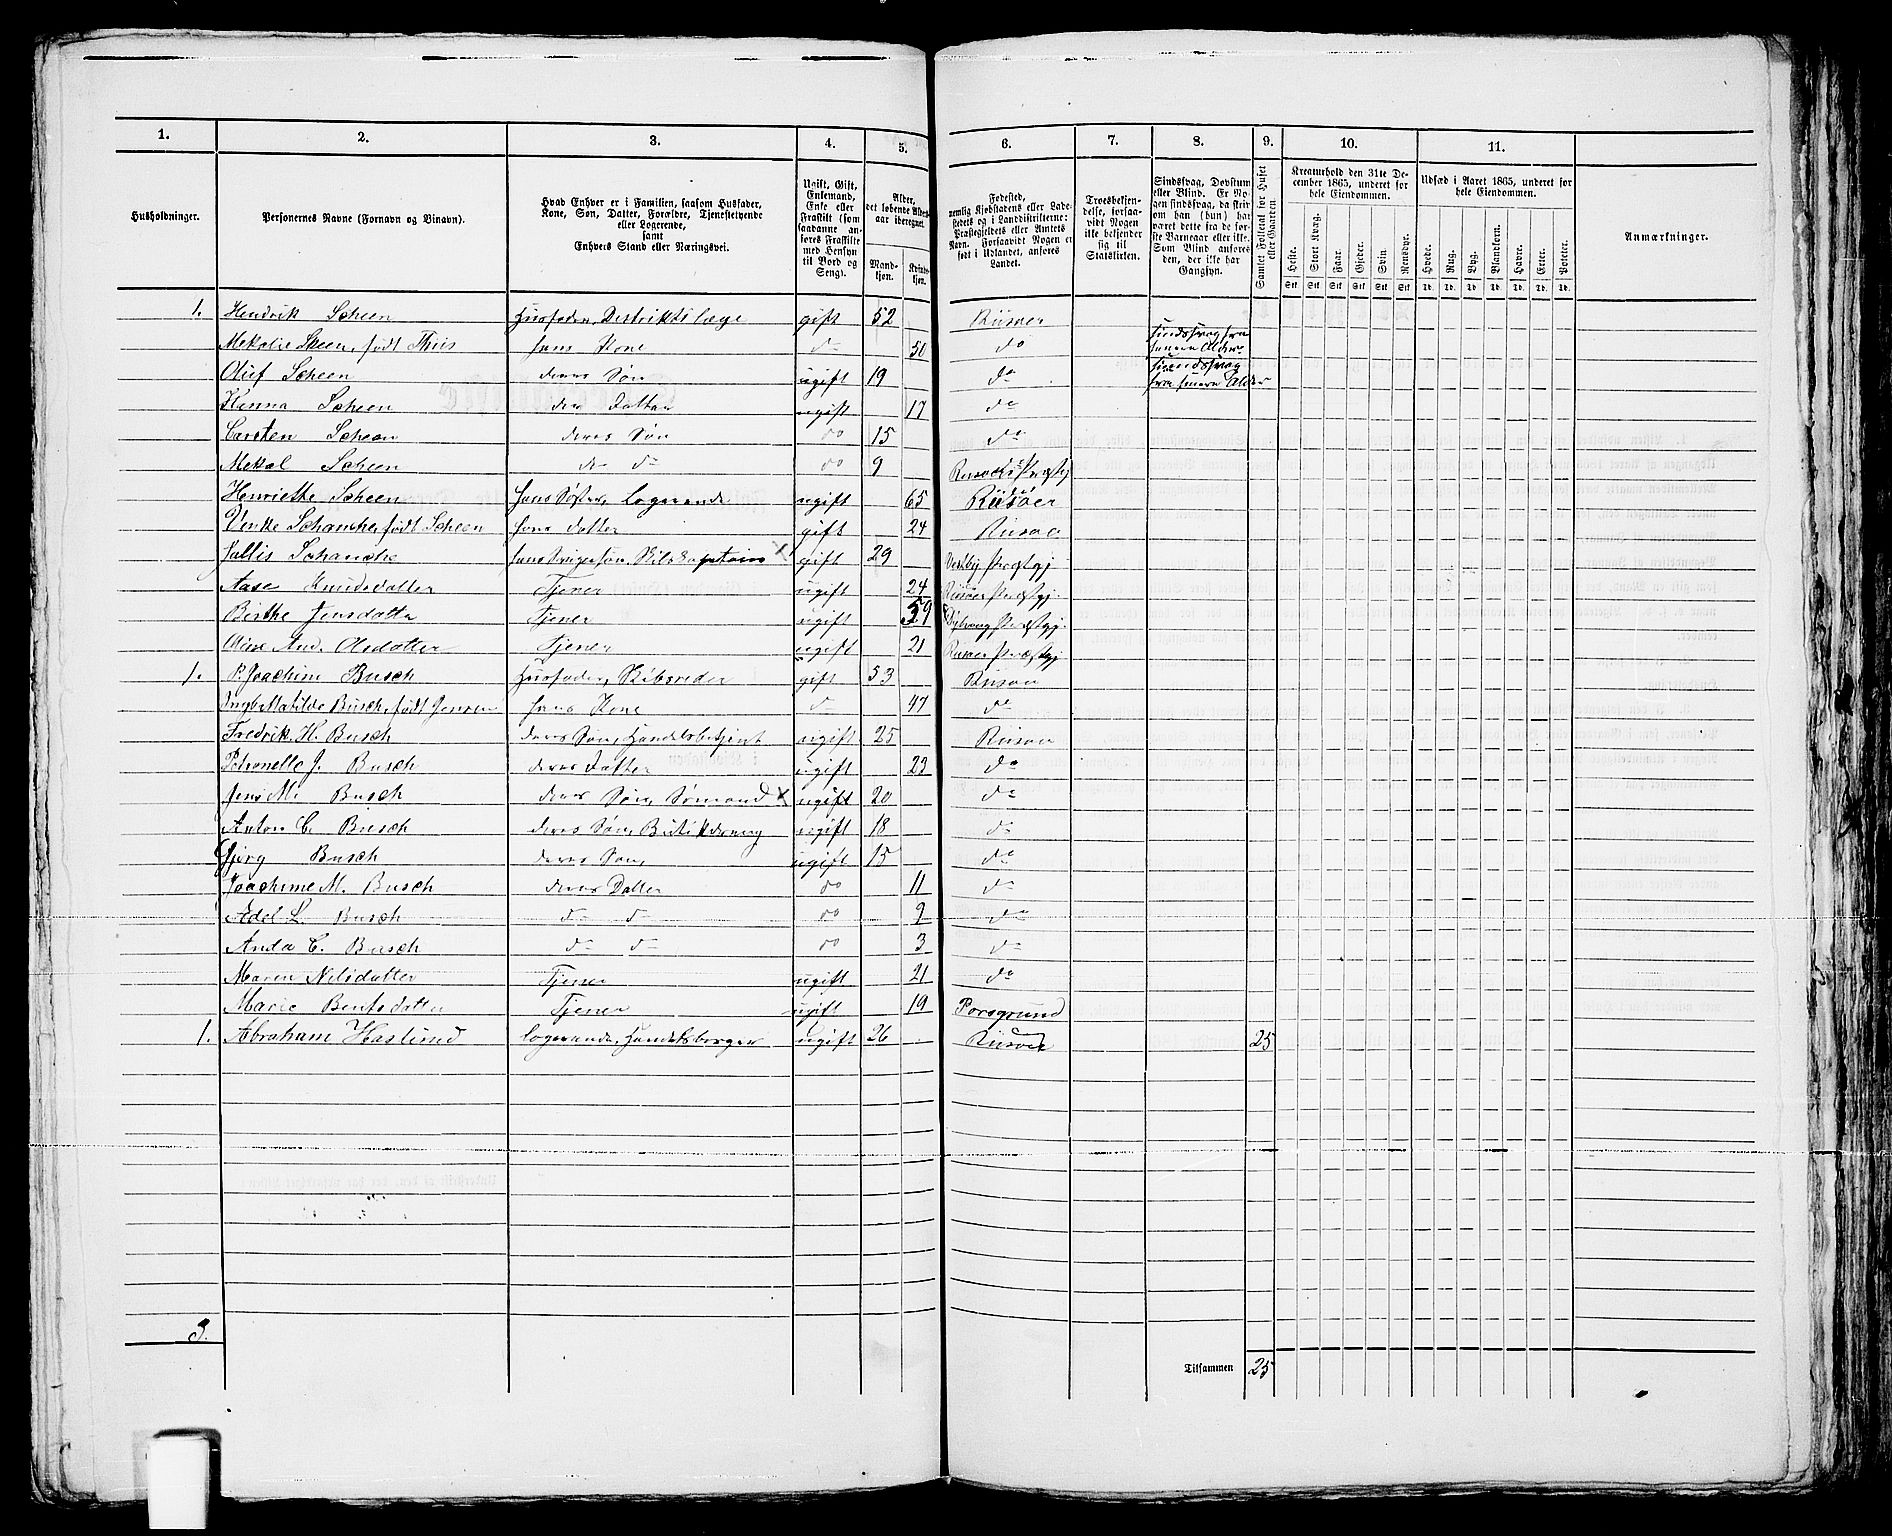 1. 2. 3. 4. 5. 6. 7. 8. 9. 10. 11.
Husholdninger.
Personernes Navne (Fornavn og Binavn).
Hvad Enhver er i Familien, saasom Husfader, Kone, Søn, Datter, Forældre, Tjenestetyende eller Logerende, samt Enhvers Stand eller Næringsvei.
Ugift, Gift, Enkemand, Enke eller Fraskilt (som saadanne anføres Fraskilte med Hensyn til Bord og Seng).
Alder, det løbende Aldersaar iberegnet.
Mandkjøn. Kvindekjøn.
Fødested, nemlig Kjøbstadens eller Ladestedets og i Landdistrikterne: Præstegjeldets eller Amtets Navn. Forsaavidt Nogen er født i Udlandet, anføres Landet.
Troesbekjendelse, forsaavidt Nogen ikke bekjender sig til Statskirken.
Sindssvag, Døvstum eller Blind. Er Nogen sindssvag, da skrives om han (hun) har været dette fra de første Barneaar eller ikke. Som Blind anføres den, der ikke har Gangsyn.
Samlet Folketal for Huset eller Gaarden.
Kreaturhold den 31te December 1865, underet for hele Eiendommen.
Heste. Stort Kvæg. Faar. Gjeder. Svin. Rensdyr.
Udsæd i Aaret 1865, underet for hele Eiendommen.
Hvede. Rug. Byg. Blandkorn. Havre. Erter. Poteter.
Anmærkninger.
Stk Stk Stk Stk Stk Stk Td. Td. Td. Td. Td. Td. Td.
1. Hendrik Scheen Husfader, Destriktslæge gift 52 Riisøer
født Thiis hans Kone do 50 do sindssvag fra senere Alder
Oluf Scheen deres Søn ugift 19 do sindssvag fra senere Alder
Hanna Scheen deres Datter ugift 17 do
Carsten Scheen deres Søn do 15 do
Mekal Scheen do do do 9
Henriette Scheen hans Søster, Logerende ugift 65 Riisøer
Vinke Schanche, født Scheen hans Datter gift 24 Riisøer
Schanche gift 29 Præstgj
Aase Knudsdatter Tjener ugift 24 Riisøer Præstgj.
Birthe Jensdatter Tjener ugift 59 Præstgj.
And. Olsdatter Tjener ugift 21 Riisøer Præstgj
1. P. Joachim Busch Husfader, Skibsreder gift 53 Riisøer
Matilde Busch, født Jensen hans Kone do 47 do
Fredrik H. Busch deres Søn, Handelsbetjent ugift 25 Riisøer
Petronelle J. Busch deres Datter ugift 23 do
Jens M. Busch deres Søn, Sømand x ugift 20 do
Anton C. Busch deres Søn, ugift 18 do
Gjørg Busch deres Søn, ugift 15 do
Joachime M. Busch deres Datter do 11 do
Adel L. Busch do do do 9 do
Anda C. Busch do do do 3 do
Maren Nilsdatter Tjener ugift 21 do
Marie Bentsdatter Tjener ugift 19 Porsgrund
1. Abraham Haslund Logerende, Handelsborger ugift 26 Riisøer 25
3.
Tilsammen 25